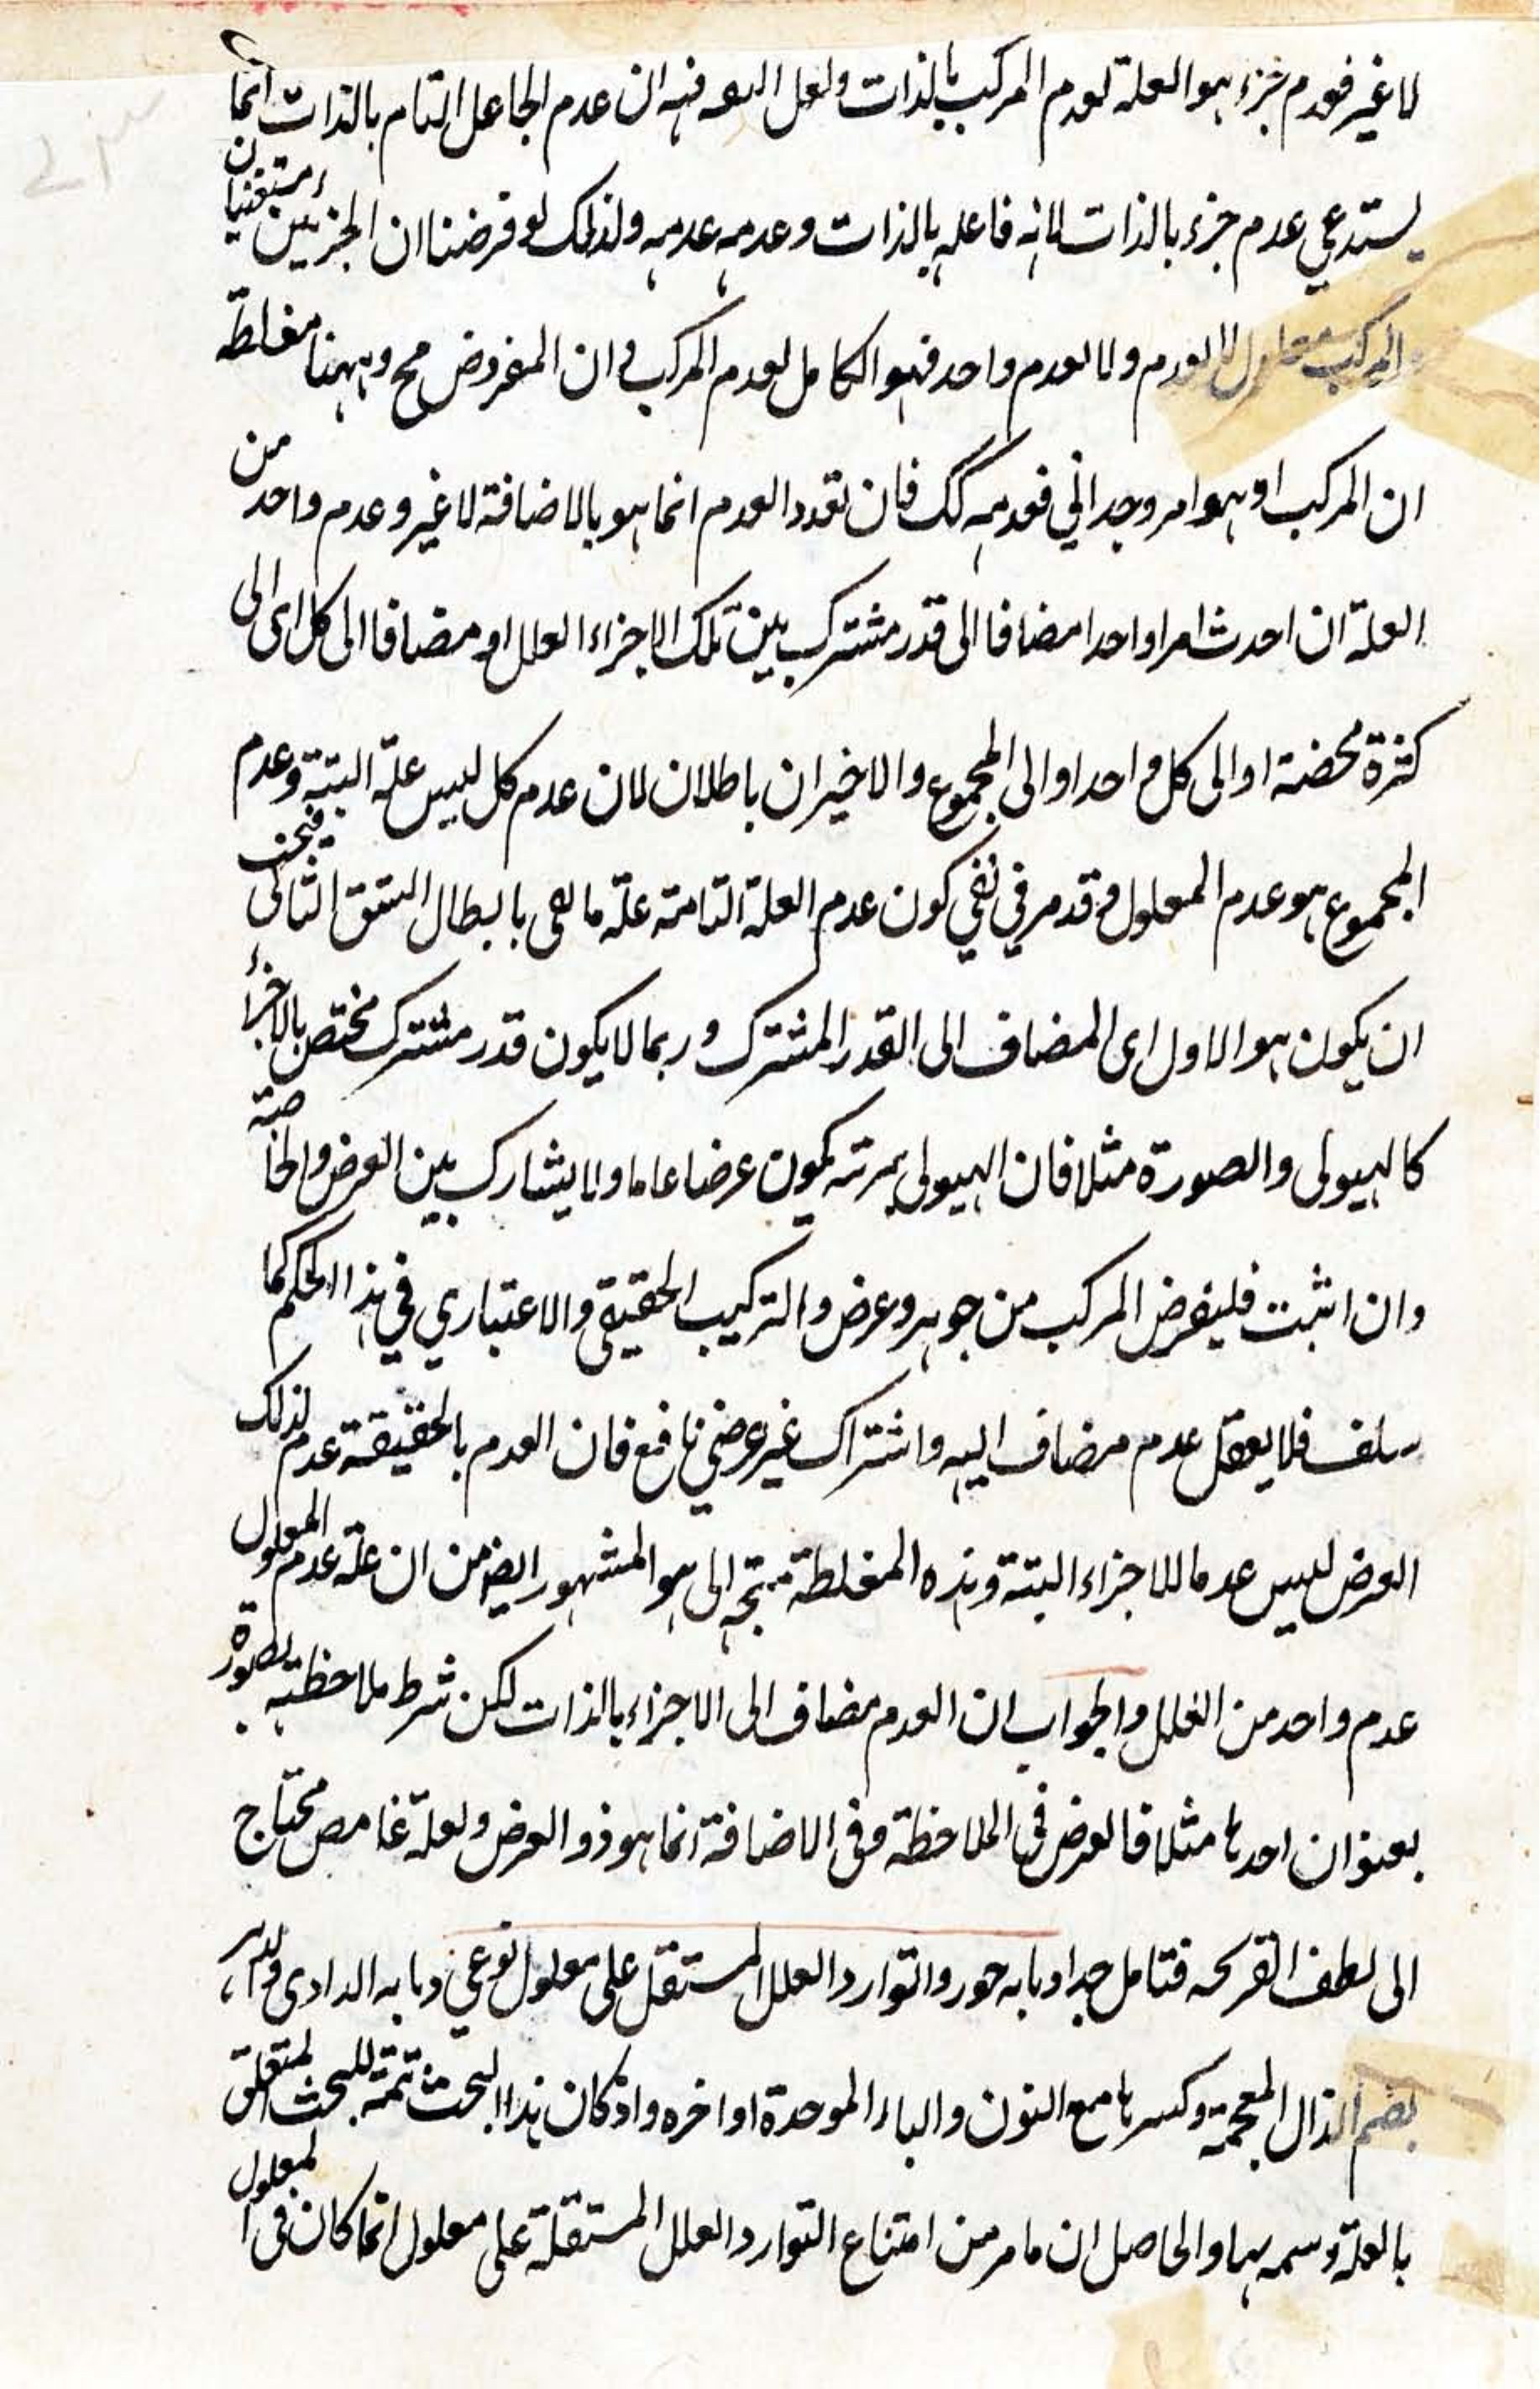 لا غير فعدم جزء هو العلة لعدم المركب بالذات ولعل فيه ان عدم الجاعل التام بالذات انما
يستدعي عدم جزء بالذات لانه فاعله بالذات وعدمه عدمه ولذلك لو فرضنا ان الجزئين مستغنيان
والمركب معلول لا لعدم ولا لعدم واحد فهو الكامل لعدم المركب و ان المفروض مح وههنا مغلطة
ان المركب اذ هو امر وحداني فعدمه كك فان تعدد العدم انما هو بالاضافة لا غير وعدم واحد من
العلة ان احدث امرا واحدا مضافا الى قدر مشترك بين تلك الاجزاء العلل او مضافا الى كل اى الى
كثرة محضة او الى كل واحد او الى المجموع والاخيران باطلان لان عدم كل ليس علة البتة وعدم
المجموع هو عدم المعلول و قد مر في نفي كون عدم العلة التامة علة ما يفى بابطال الشق الثانى فيجب
ان يكون هو الاول اى المضاف الى القدر المشترك وربما لا يكون قدر مشترك مختص بالاجزاء
كالهيولى والصورة مثلا فان الهيولى يكون عرضا عاما ولا يشارك بين العرض والخاصة
وان اثبت فليفرض المركب من جوهر وعرض والتركيب الحقيقى والاعتباري في هذا الحكم كما
سلف فلا يعقل عدم مضاف اليه واشتراك غير عرضي نافع فان العدم بالحقيقة عدم لذلك
العرض ليس عدما للاجزاء البتة وهذه المغلطة متجه الى هو المشهور ايضا من ان علة عدم المعلول
عدم واحد من العلل والجواب ان العدم مضاف الى الاجزاء بالذات لكن شرط ملاحظته تصوره
بعنوان احدها مثلا فالعرض في الملاحظة وفى الاضافة انما هو ذو العرض ولعله غامض محتاج
الى لطف القريحه فتامل جدا وبابه جوزوا توارد العلل المستقل على معلول نوعي دبابه الدادى
بضم الذال المعجمة وكسرها مع النون والباء الموحدة اواخره واذ كان هذا البحث تتمة للبحث المتعلق
بالعلة وسمه بها والحاصل ان ما مر من امتناع التوارد العلل المستقلة على معلول انما كان فى المعلول